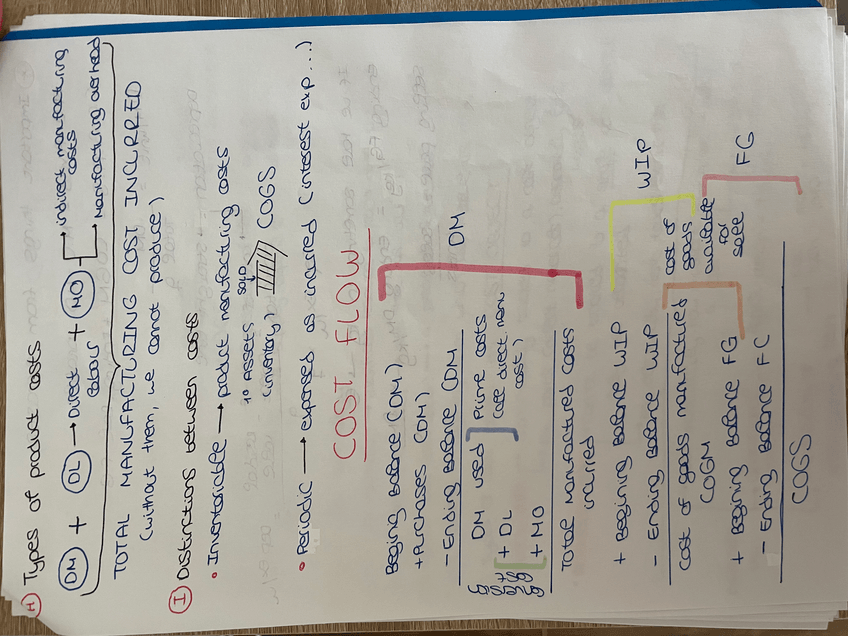 H Types of product costs
DM + DL → Direct labour + MO → indirect manufacturing costs
→ Manufacturing overhead
TOTAL MANUFACTURING COST INCURRED
(without them, we cannot produce)
I Distinctions between costs
• Inventoriable → product manufacturing costs
to ASSETS SOLD COGS
(inventory)
• Periodic → expensed as incurred (interest exp...)
COST FLOW
Begining Balance (DM)
+ Purchases (DM)
- Ending Balance (DM)
DM
DM used
Prime costs
(all direct man. cost)
+ DL
+ MO
Total manufactured costs
incurred
+ Begining Balance WIP
- Ending Balance WIP
WIP
Cost of goods manufactured
COGM
cost of
goods
available
for
sale
+ Begining Balance FG
- Ending Balance FG
FG
COGS